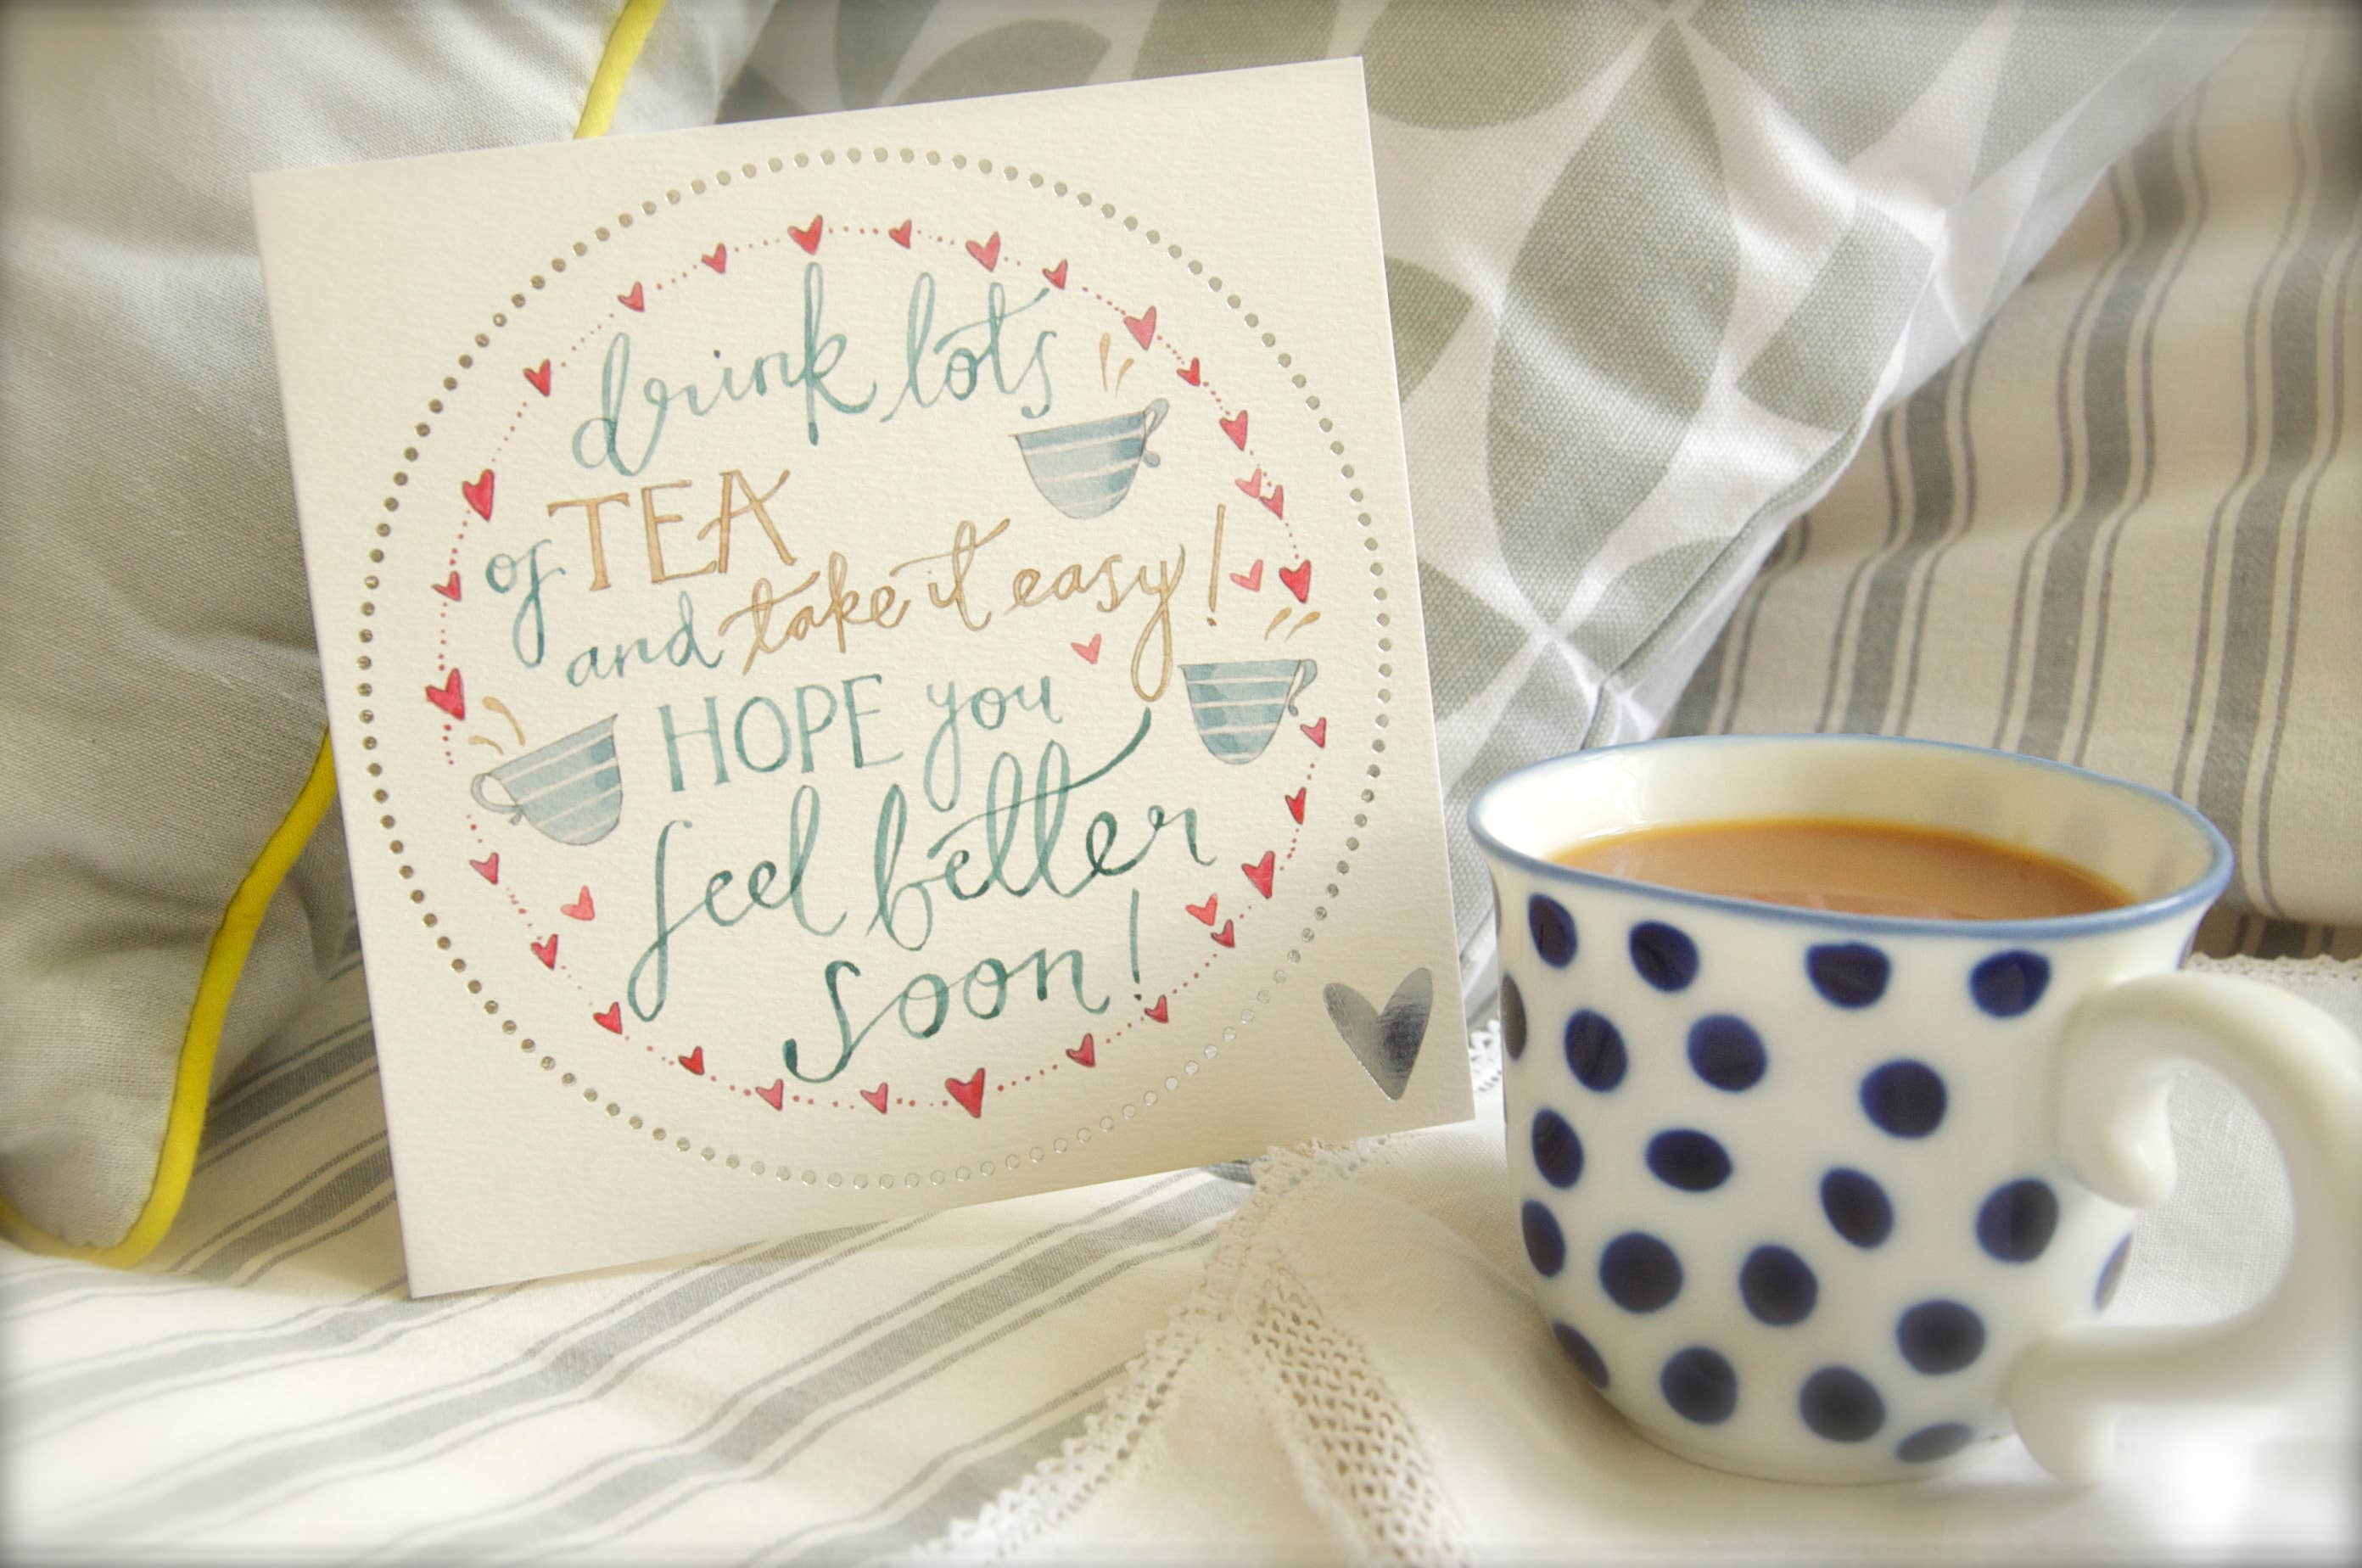 drink lots
of TEA
and take it easy!
HOPE you
feel better
soon!